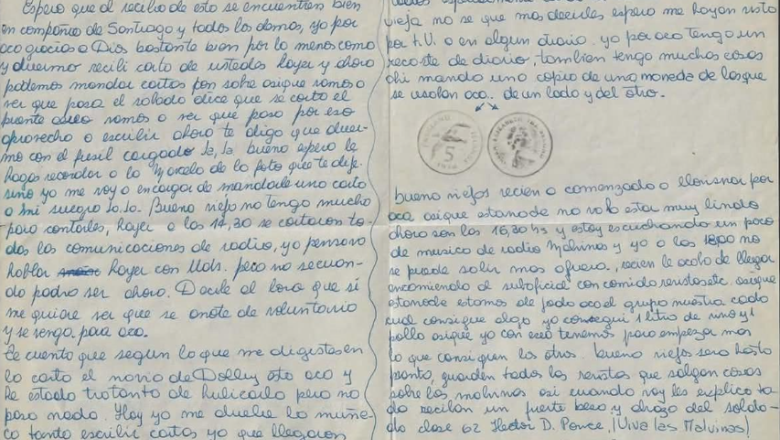 Espero que al recibo de esto se encuentren bien
en compañia de Santiago y todos los demas, yo por
aca gracias a Dios bastante bien por lo menos como
y duermo recibi carta de ustedes hayer y ahora
podemos mandar cartas por sobre asique vamos a
ver que pasa el sabado dice que se corto el
puente aereo vamos a ver que pasa por eso
aprovecho a escribir ahora te digo que duer-
mo con el fusil cargado Ja, Ja bueno espero le
hagas recordar a la Marcela de la foto que te deje
sino yo me voy a encargar de mandarle una carta
a mi suegro Ja.Ja. Bueno viejo no tengo mucho
para contarles, hayer a las 14,30 se cortaron to-
das las comunicaciones de radio, yo pensava
hablar hayer con Uds. pero no se cuan-
do podra ser ahora. Decile al loro que si
me quiere ver que se anote de voluntario
y se venga para aca.
Le cuento que segun lo que me digistes en
la carta el novio de Dolly esta aca y
he estado tratando de hubicarlo pero no
paso nada. Hoy ya me duele la muñe-
ca tanto escribir cartas ya que llegaron
vieja no se que mas decirles espero me hayan visto
por t.V. o en algun diario. yo por aca tengo un
recorte de diario, tambien tengo muchas cosas
ahi mando una copia de una moneda de las que
se usaban aca. de un lado y del otro.
5
bueno viejos recien a comenzado a lloviznar por
aca asique esta noche no va a estar muy linda
ahora son las 16,30 hs y estoy escuchando un poco
de musica de radio Malvinas y ya a las 18,00 no
se puede salir mas afuera, recien le acaba de llegar
encomienda al suboficial con comida asique
esta noche estamos de joda aca el grupo nuestro cada
cual consigue algo yo consegui 1 litro de vino y 1
pollo asique ya con eso tenemos para empezar mas
lo que consiguen los otros. bueno viejos sera hasta
pronto, guarden todas las revistas que salgan cosas
sobre las malvinas asi cuando voy les explico to-
do reciban un fuerte beso y abrazo del solda-
do clase 62 Hector D. Ponce. ¡Viva las Malvinas!